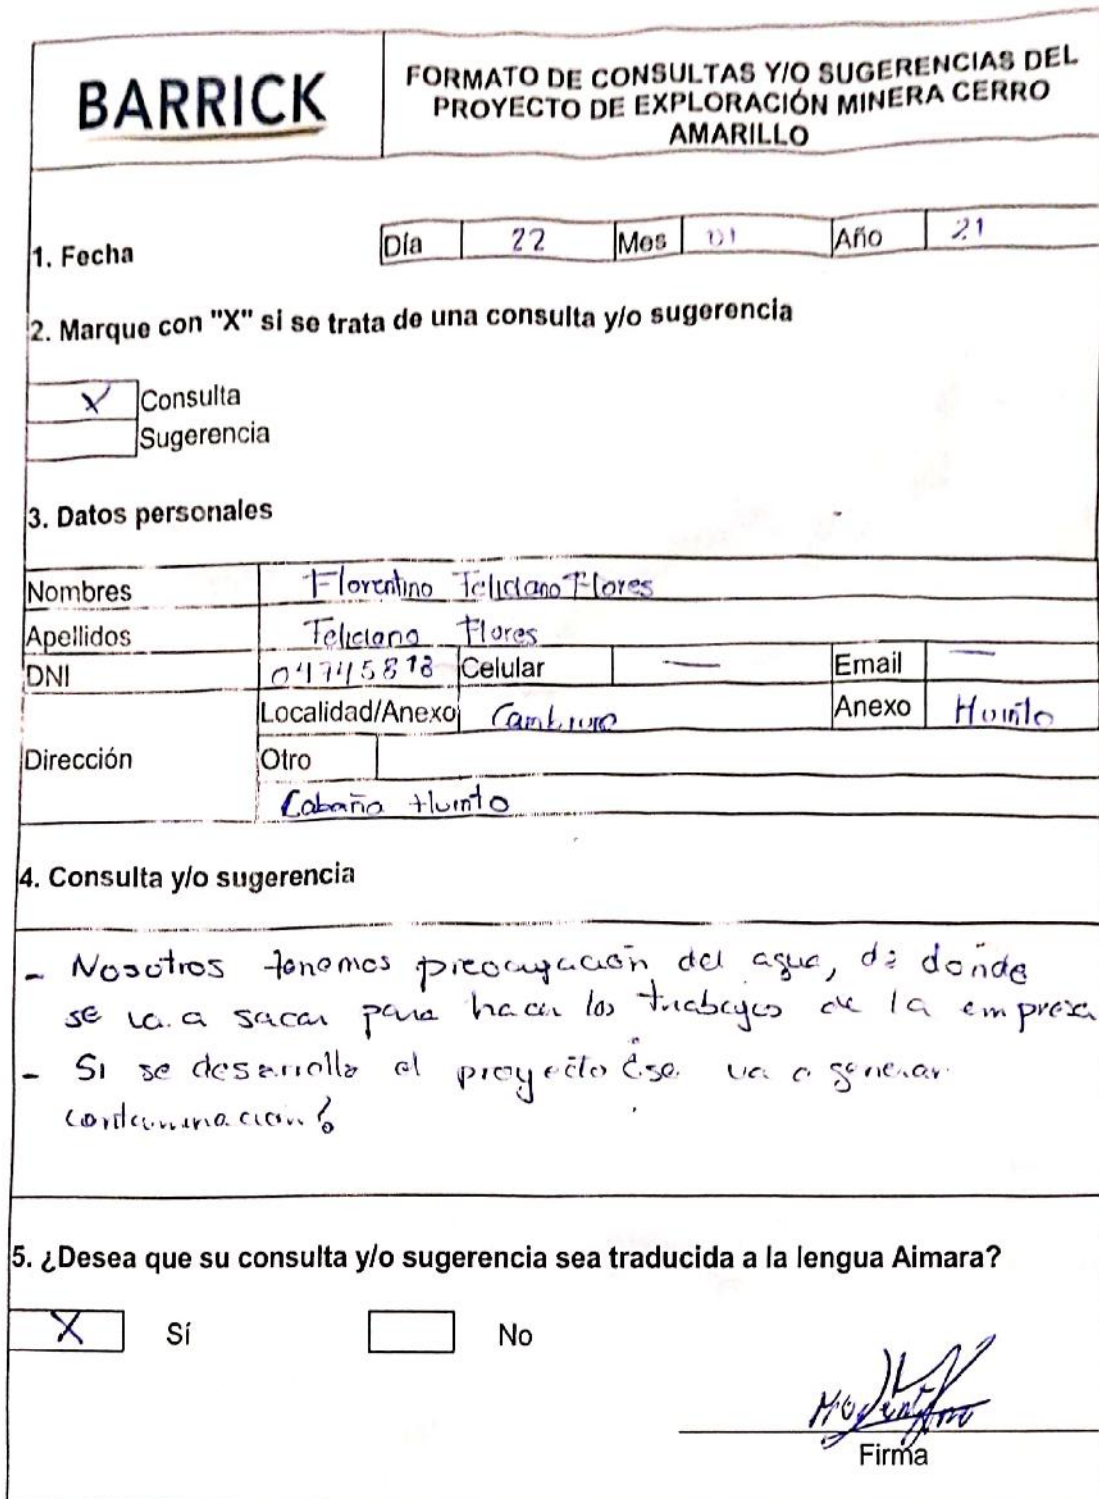 BARRICK
FORMATO DE CONSULTAS Y/O SUGERENCIAS DEL
PROYECTO DE EXPLORACIÓN MINERA CERRO
AMARILLO
1. Fecha
Día 22 Mes 01 Año 21
2. Marque con "X" si se trata de una consulta y/o sugerencia
X Consulta
Sugerencia
3. Datos personales
Nombres Florentino Feliciano Flores
Apellidos Feliciano Flores
DNI Celular — Email —
Localidad/Anexo Anexo
Dirección Otro
Cabaña
4. Consulta y/o sugerencia
- Nosotros tenemos preocupación del agua, de donde
se va a sacar para hacer los trabajos de la empresa
- Si se desarrolla el proyecto ¿se va a generar
contaminacion?
5. ¿Desea que su consulta y/o sugerencia sea traducida a la lengua Aimara?
X Sí No
Firma